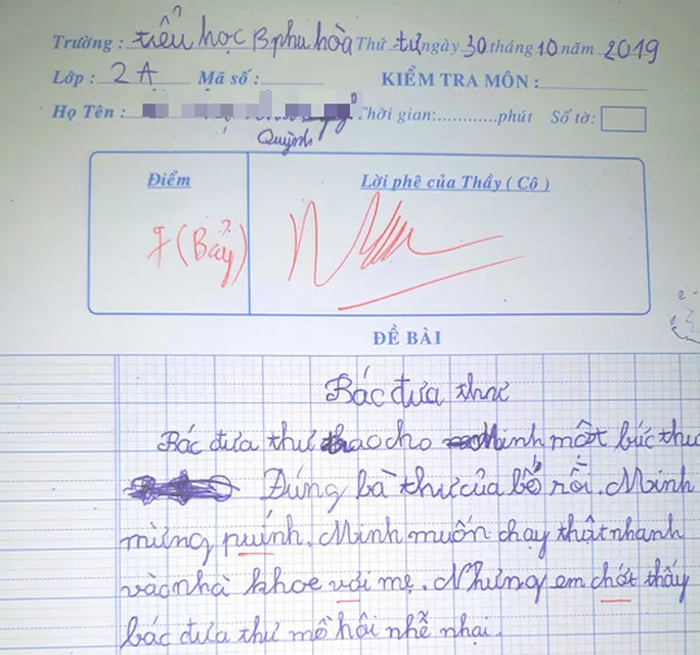 Trường : tiểu học B phu hòa Thứ tư ngày 30 tháng 10 năm 2019
Lớp : 2A Mã số : KIỂM TRA MÔN :
Họ Tên : Thời gian:............phút Số tờ:
Quỳnh
Điểm Lời phê của Thầy ( Cô )
7 (Bảy)
ĐỀ BÀI
Bác đưa thư
Bác đưa thư trao cho Minh một bức thư
Đúng bà thư của bố rồi. Minh
mừng puính. Minh muốn chạy thật nhanh
vào nhà khoe với mẹ. Nhưng em chớt thấy
bác đưa thư mồ hôi nhễ nhại.